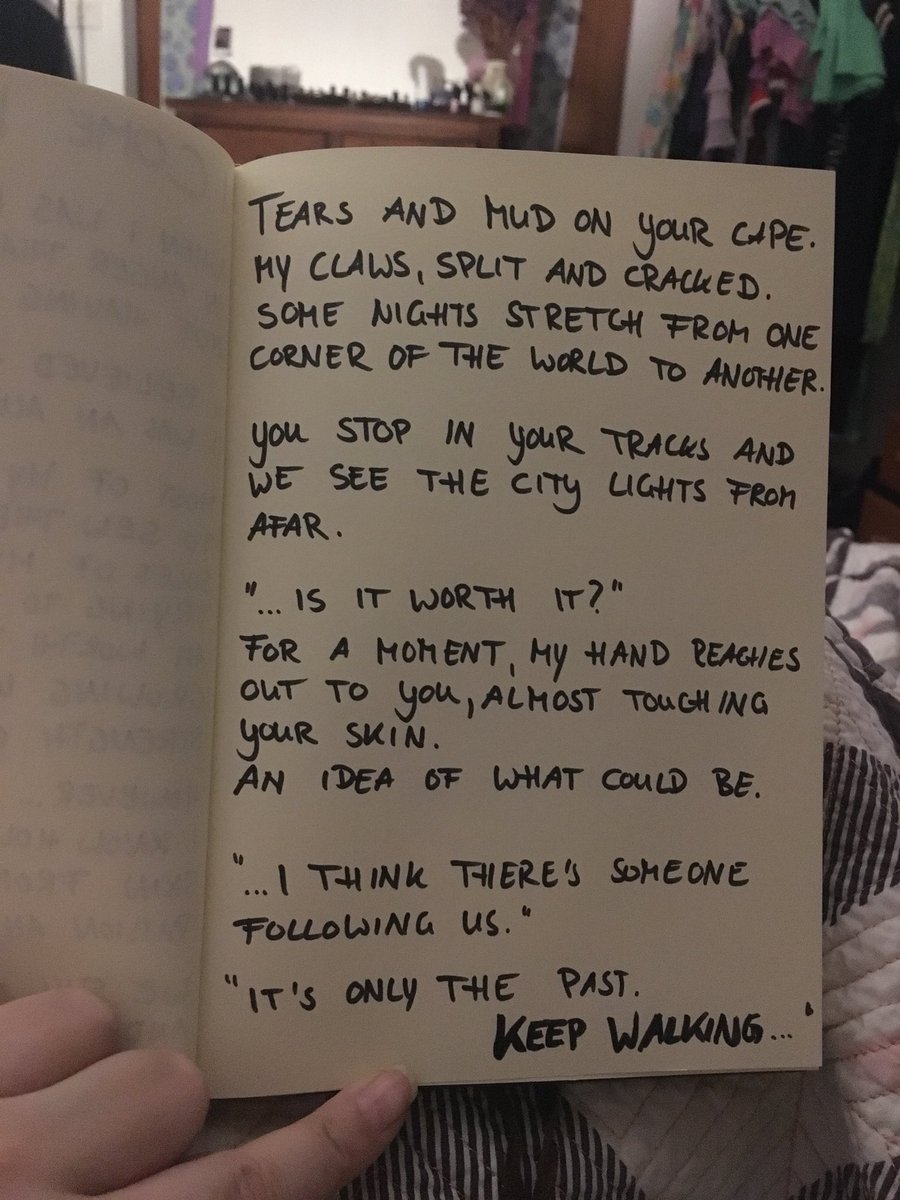 TEARS AND MUD ON YOUR CAPE.
MY CLAWS, SPLIT AND CRACKED.
SOME NIGHTS STRETCH FROM ONE
CORNER OF THE WORLD TO ANOTHER.
YOU STOP IN YOUR TRACKS AND
WE SEE THE CITY LIGHTS FROM
AFAR.
"... IS IT WORTH IT?"
FOR A MOMENT, MY HAND REACHES
OUT TO YOU, ALMOST TOUCHING
YOUR SKIN.
AN IDEA OF WHAT COULD BE.
"... I THINK THERE'S SOMEONE
FOLLOWING US."
"IT'S ONLY THE PAST.
KEEP WALKING... '